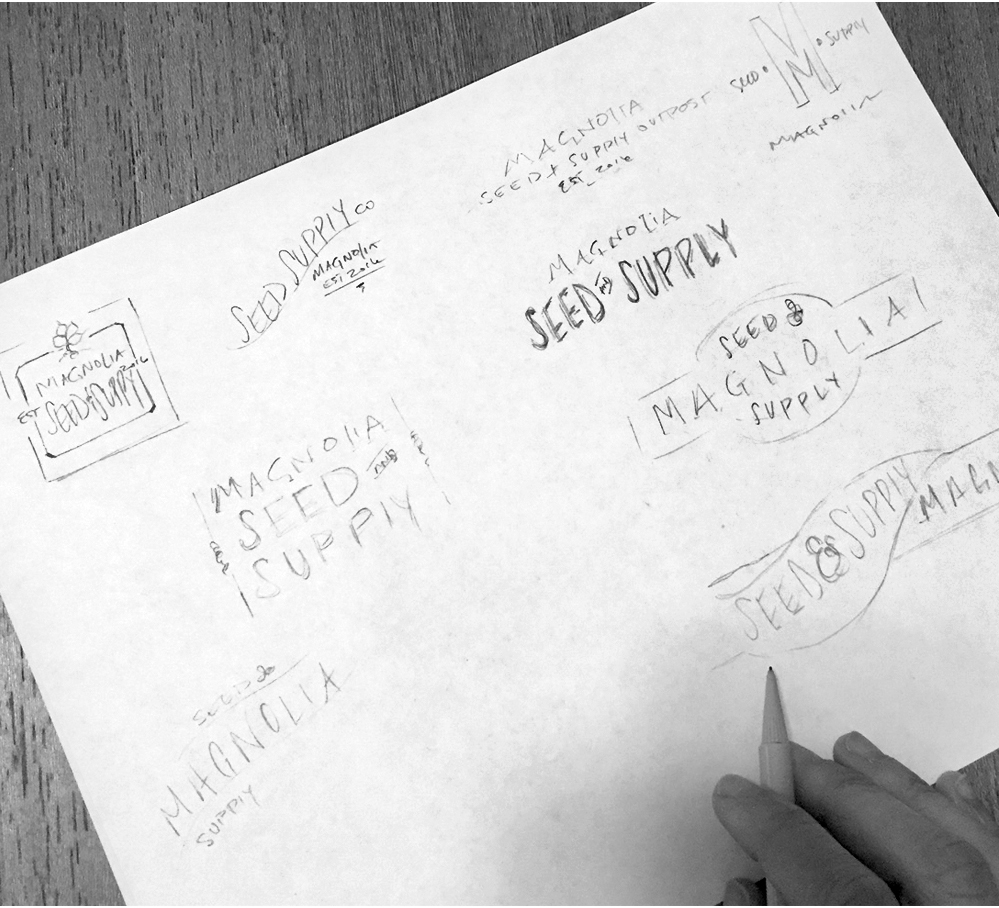 M
SEED • • SUPPLY
MAGNOLIA
MAGNOLIA
SEED + SUPPLY OUTPOST
EST. 2016
SEED SUPPLY CO
MAGNOLIA
EST 2016
MAGNOLIA
SEED AND SUPPLY
SEED &
MAGNOLIA
SUPPLY
MAGNOLIA
EST 2016
SEED + SUPPLY
MAGNOLIA
SEED AND
SUPPLY
SEED & SUPPLY MAGN
SEED &
MAGNOLIA
SUPPLY